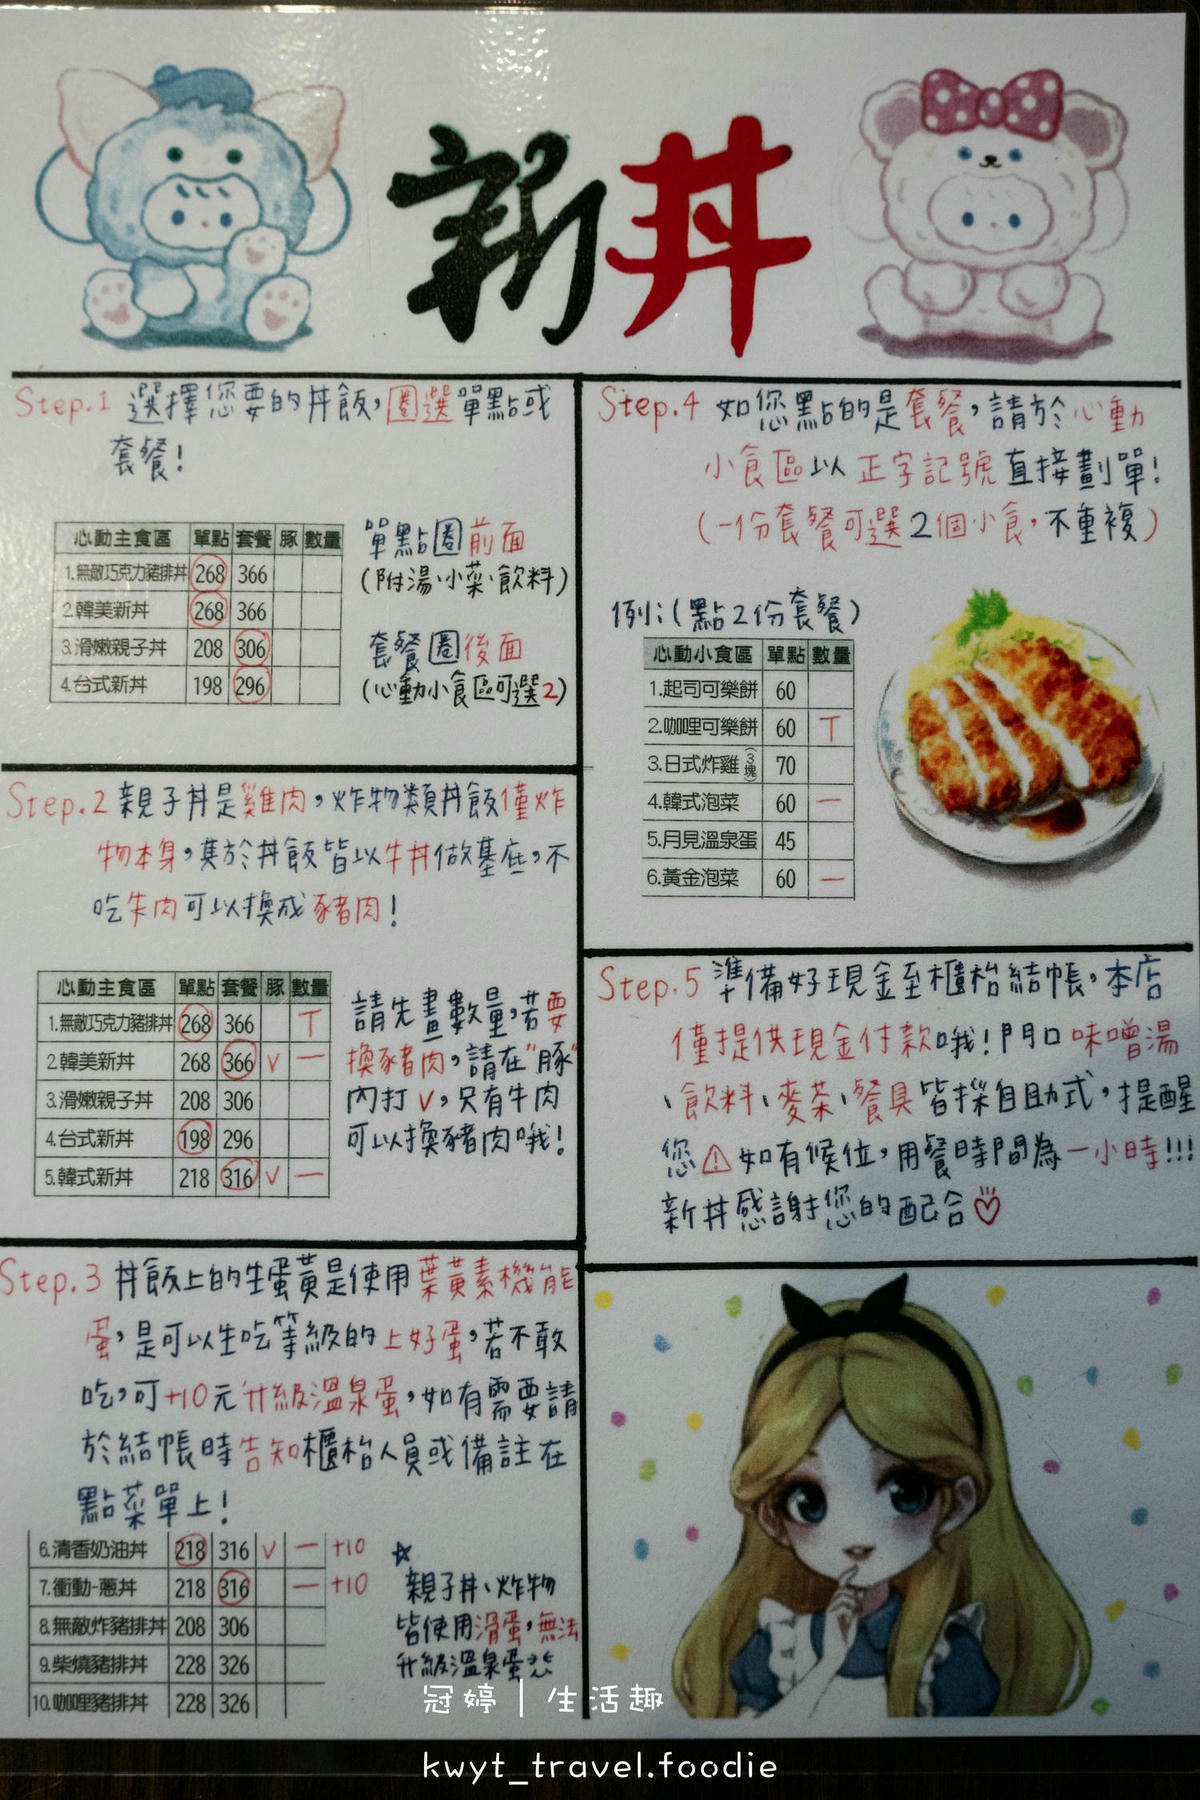 新丼
Step.1 選擇您要的丼飯，圈選單點或
套餐!
心動主食區 單點 套餐 豚 數量
1.無敵巧克力豬排丼 268 366
2.韓美新丼 268 366
3.滑嫩親子丼 208 306
4.台式新丼 198 296
單點圈前面
(附湯、小菜、飲料)
套餐圈後面
(心動小食區可選2)
Step.2 親子丼是雞肉，炸物類丼飯僅炸
物本身，其於丼飯皆以牛丼做基底，不
吃牛肉可以換成豬肉!
心動主食區 單點 套餐 豚 數量
1.無敵巧克力豬排丼 268 366 T
2.韓美新丼 268 366 V 一
3.滑嫩親子丼 208 306
4.台式新丼 198 296
5.韓式新丼 218 316 V 一
請先畫數量，若要
換豬肉，請在"豚"
內打V，只有牛肉
可以換豬肉哦!
Step.3 丼飯上的生蛋黃是使用葉黃素機能
蛋，是可以生吃等級的上好蛋，若不敢
吃，可+10元升級溫泉蛋，如有需要請
於結帳時告知櫃枱人員或備註在
點菜單上!
6.清香奶油丼 218 316 V 一 +10
7.衝動-蔥丼 218 316 一 +10
8.無敵炸豬排丼 208 306
9.柴燒豬排丼 228 326
10.咖哩豬排丼 228 326
☆
親子丼、炸物
皆使用滑蛋，無法
升級溫泉蛋
Step.4 如您點的是套餐，請於心動
小食區以正字記號直接劃單!
(一份套餐可選2個小食，不重複)
例:(點2份套餐)
心動小食區 單點 數量
1.起司可樂餅 60
2.咖哩可樂餅 60 T
3.日式炸雞(3塊) 70
4.韓式泡菜 60 一
5.月見溫泉蛋 45
6.黃金泡菜 60 一
Step.5 準備好現金至櫃枱結帳，本店
僅提供現金付款哦!門口味噌湯
、飲料、麥茶、餐具皆採自助式，提醒
您⚠如有候位，用餐時間為一小時!!!
新丼感謝您的配合♡
冠婷 | 生活趣
kwyt_travel.foodie